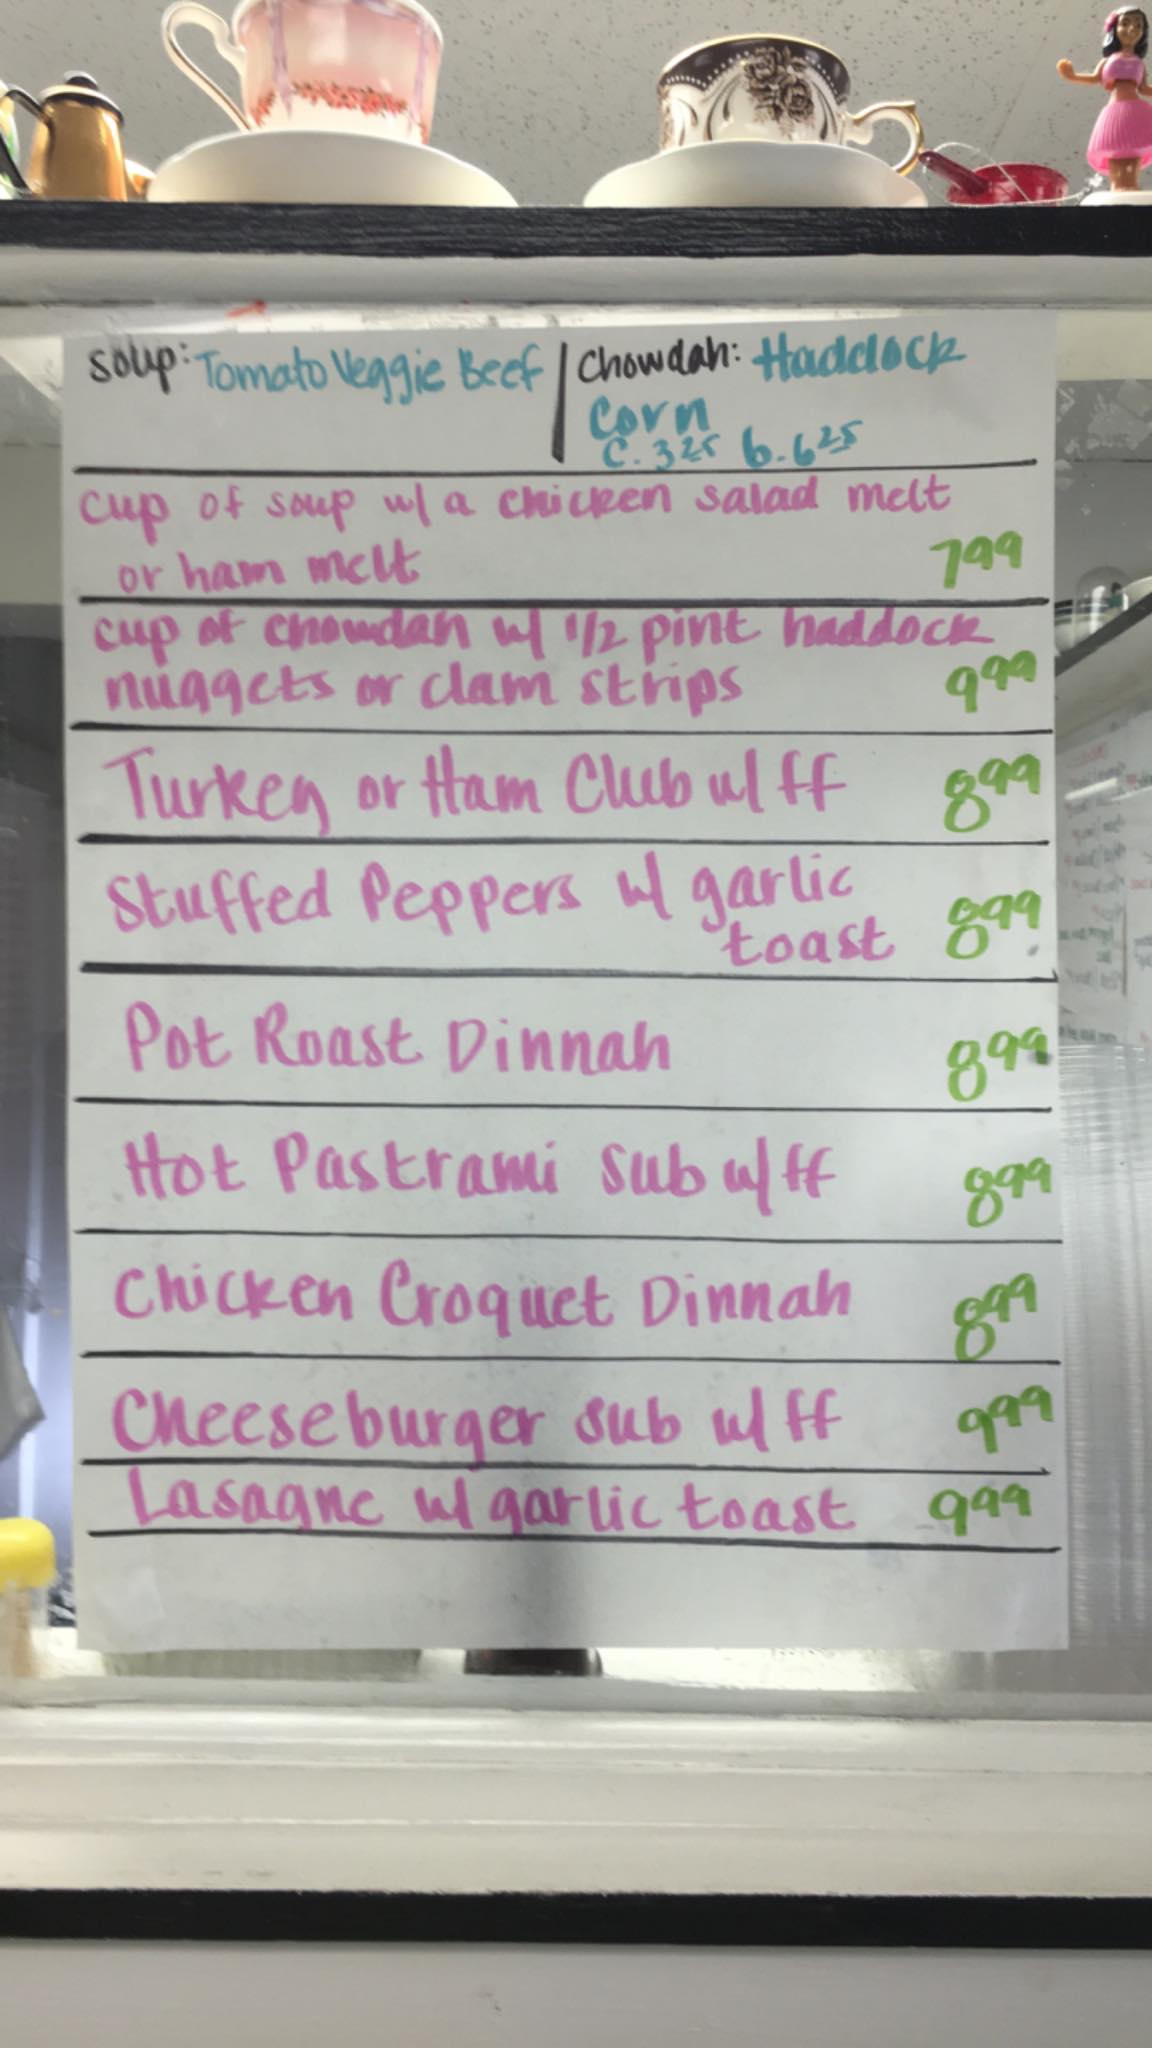 Soup: Tomato Veggie Beef | Chowdah: Haddock
Corn
c. 3 25 b. 6 25
cup of soup w/ a chicken salad melt
or ham melt 7 99
cup of chowdah w/ 1/2 pint haddock
nuggets or clam strips 9 99
Turkey or Ham Club w/ ff 8 99
Stuffed Peppers w/ garlic
toast 8 99
Pot Roast Dinnah 8 99
Hot Pastrami Sub w/ ff 8 99
Chicken Croquet Dinnah 8 99
Cheeseburger sub w/ ff 9 99
Lasagne w/ garlic toast 9 99